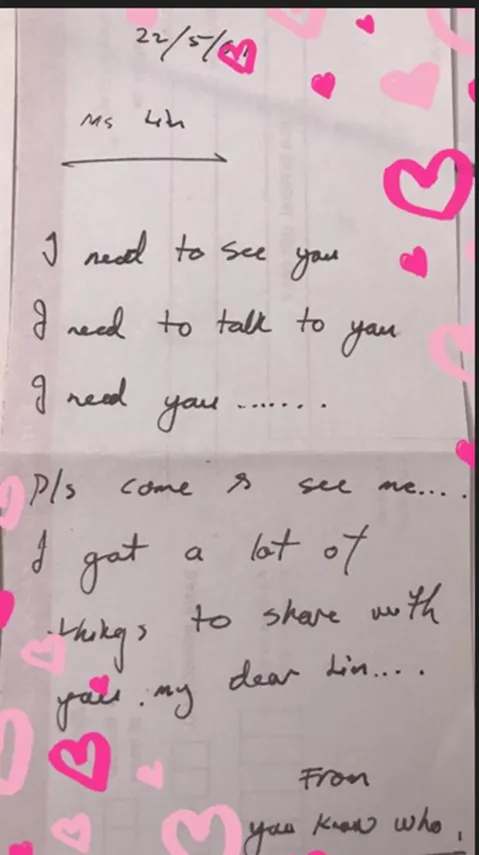 22/5/
Ms Lin
I need to see you
I need to talk to you
I need you .......
P/s come & see me....
I got a lot of
things to share with
you. my dear Lin....
From
you know who.